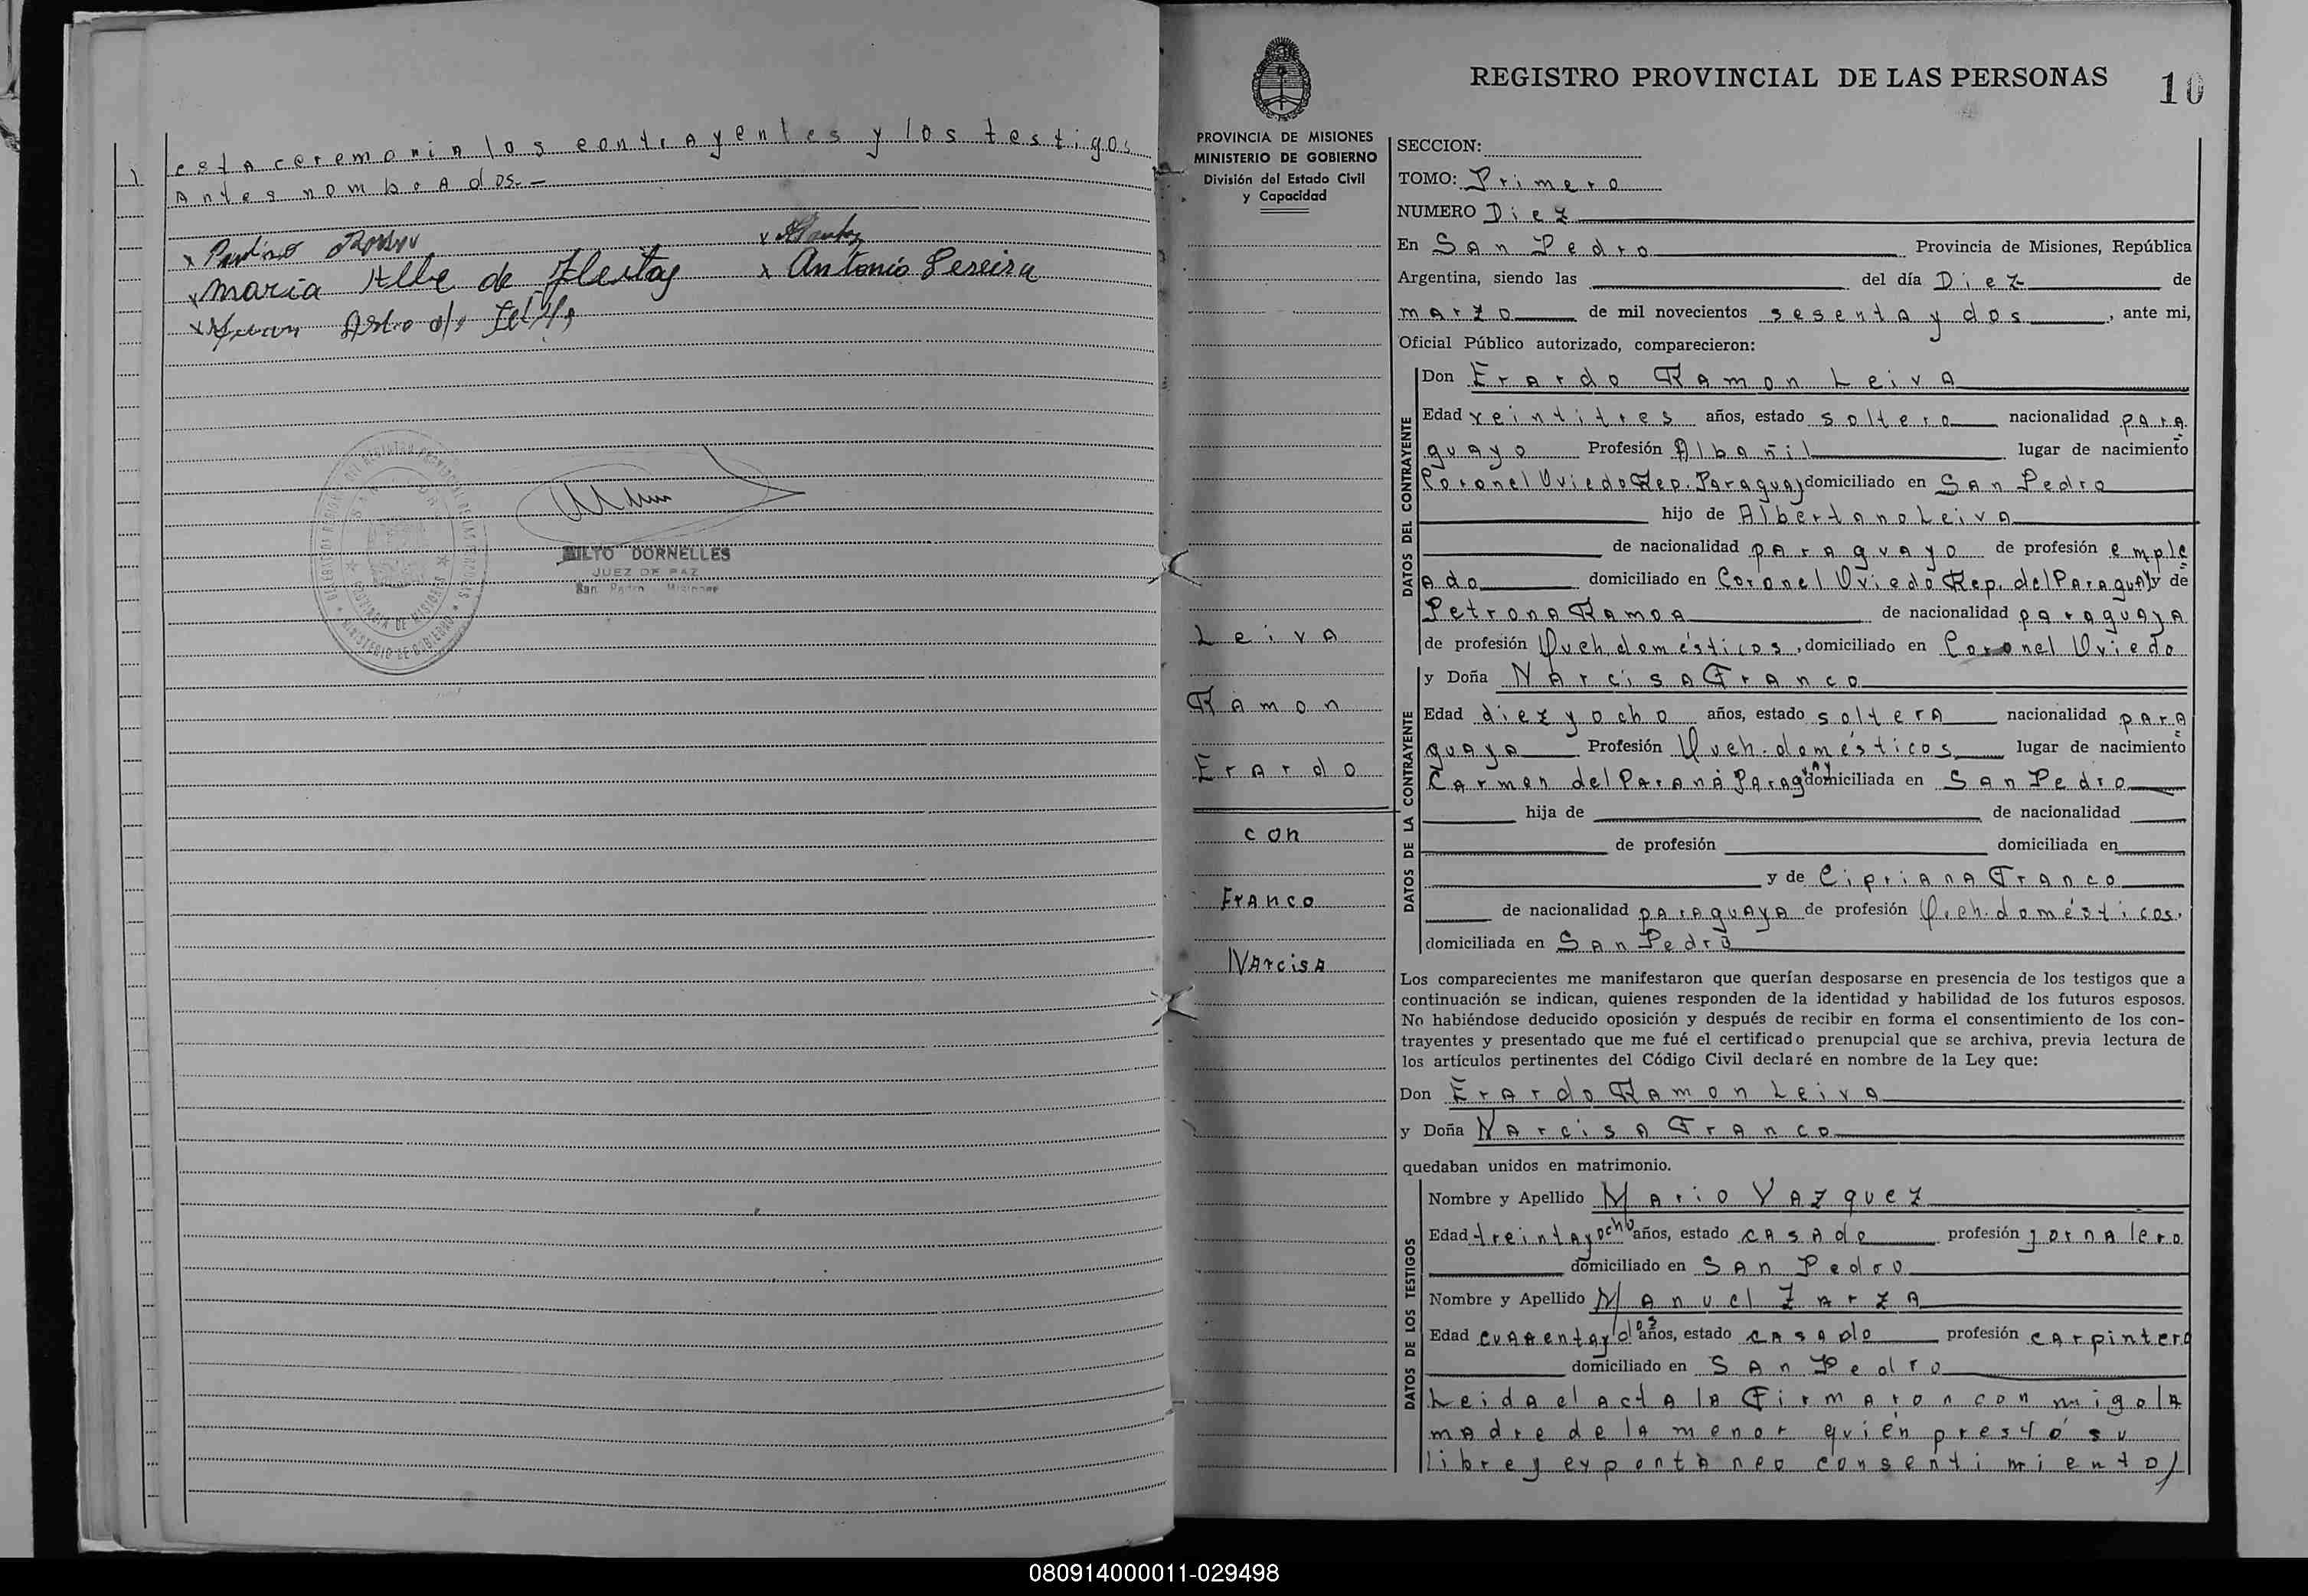 esta ceremonia los contrayentes y los testigos
antes nombrados.-
x
x maria Albe de Fleitas x Antonio Pereira
x
MINISTERIO DE GOBIERNO
PROVINCIA DE MISIONES
MILTO DORNELLES
JUEZ DE PAZ
San Pedro Misiones
REGISTRO PROVINCIAL DE LAS PERSONAS 10
PROVINCIA DE MISIONES
MINISTERIO DE GOBIERNO
División del Estado Civil
y Capacidad
Leiva
Ramon
Erardo
con
Franco
Narcisa
SECCION:
TOMO: Primero
NUMERO Diez
En San Pedro Provincia de Misiones, República
Argentina, siendo las del día Diez de
marzo de mil novecientos sesenta y dos, ante mi,
Oficial Público autorizado, comparecieron:
DATOS DEL CONTRAYENTE
Don Erardo Ramon Leiva
Edad veintitres años, estado soltero nacionalidad para
guayo Profesión Albañil lugar de nacimiento
Coronel Oviedo Rep. Paraguay domiciliado en San Pedro
hijo de Albertano Leiva
de nacionalidad paraguayo de profesión emple
ado domiciliado en Coronel Oviedo Rep. del Paraguay y de
Petrona Ramoa de nacionalidad paraguaya
de profesión Queh. domésticos, domiciliado en Coronel Oviedo
DATOS DE LA CONTRAYENTE
y Doña Narcisa Franco
Edad diez y ocho años, estado soltera nacionalidad para
guaya Profesión Queh. domésticos lugar de nacimiento
Carmen del Paraná Paraguay domiciliada en San Pedro
hija de de nacionalidad
de profesión domiciliada en
y de Cipriana Franco
de nacionalidad paraguaya de profesión Queh. domésticos.
domiciliada en San Pedro
Los comparecientes me manifestaron que querían desposarse en presencia de los testigos que a
continuación se indican, quienes responden de la identidad y habilidad de los futuros esposos.
No habiéndose deducido oposición y después de recibir en forma el consentimiento de los con-
trayentes y presentado que me fué el certificado prenupcial que se archiva, previa lectura de
los artículos pertinentes del Código Civil declaré en nombre de la Ley que:
Don Erardo Ramon Leiva
y Doña Narcisa Franco
quedaban unidos en matrimonio.
DATOS DE LOS TESTIGOS
Nombre y Apellido Mario Vazquez
Edad treinta y ocho años, estado casado profesión jornalero
domiciliado en San Pedro
Nombre y Apellido Manuel Zarza
Edad cuarenta y dos años, estado casado profesión carpintero
domiciliado en San Pedro
Leida el acta la firmaron con migo la
madre de la menor quién prestó su
libre y expontàneo consentimiento)
080914000011-029498